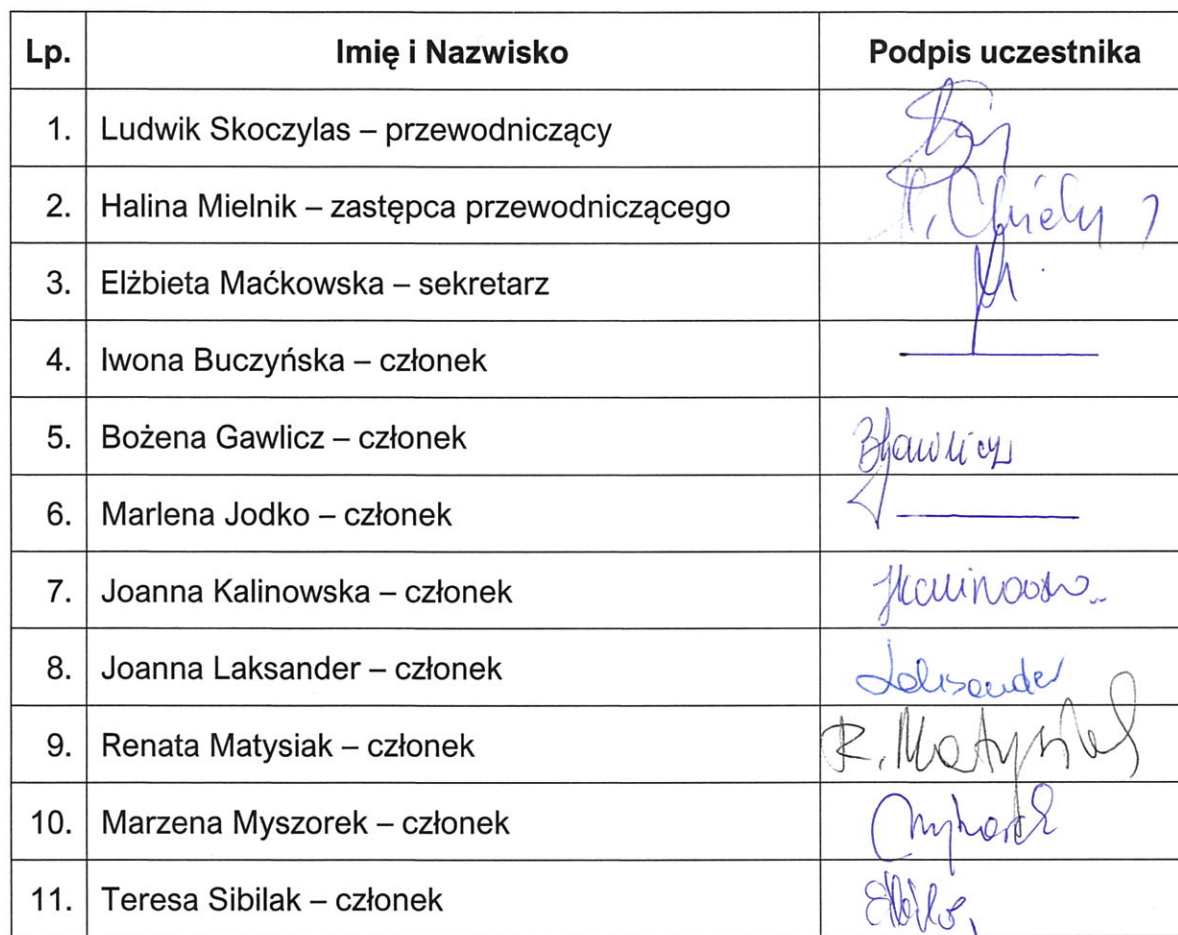 Lp. Imię i Nazwisko Podpis uczestnika
1. Ludwik Skoczylas – przewodniczący
2. Halina Mielnik – zastępca przewodniczącego
3. Elżbieta Maćkowska – sekretarz
4. Iwona Buczyńska – członek
5. Bożena Gawlicz – członek BGawlicz
6. Marlena Jodko – członek
7. Joanna Kalinowska – członek
8. Joanna Laksander – członek
9. Renata Matysiak – członek R. Matysiak
10. Marzena Myszorek – członek
11. Teresa Sibilak – członek